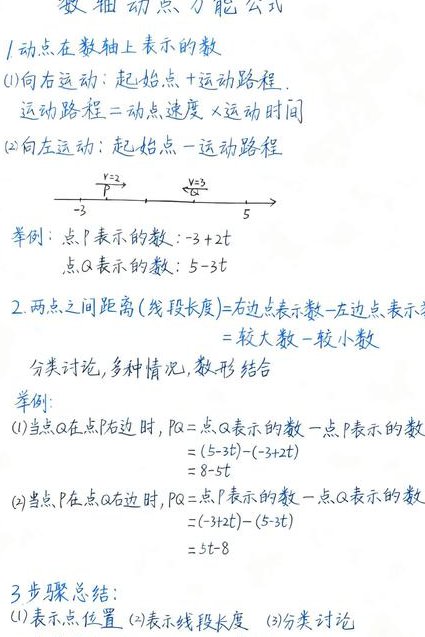 数轴动点万能公式
1.动点在数轴上表示的数
(1)向右运动:起始点+运动路程.
运动路程=动点速度×运动时间
(2)向左运动:起始点-运动路程
v=2 v=3
P Q
-3 5
举例:点P表示的数:-3+2t
点Q表示的数:5-3t
2.两点之间距离(线段长度)=右边点表示数-左边点表示
=较大数-较小数
分类讨论,多种情况,数形结合
举例:
(1)当点Q在点P右边时,PQ=点Q表示的数-点P表示的数
=(5-3t)-(-3+2t)
=8-5t
(2)当点P在点Q右边时,PQ=点P表示的数-点Q表示的数
=(-3+2t)-(5-3t)
=5t-8
3步骤总结:
(1)表示点位置 (2)表示线段长度 (3)分类讨论